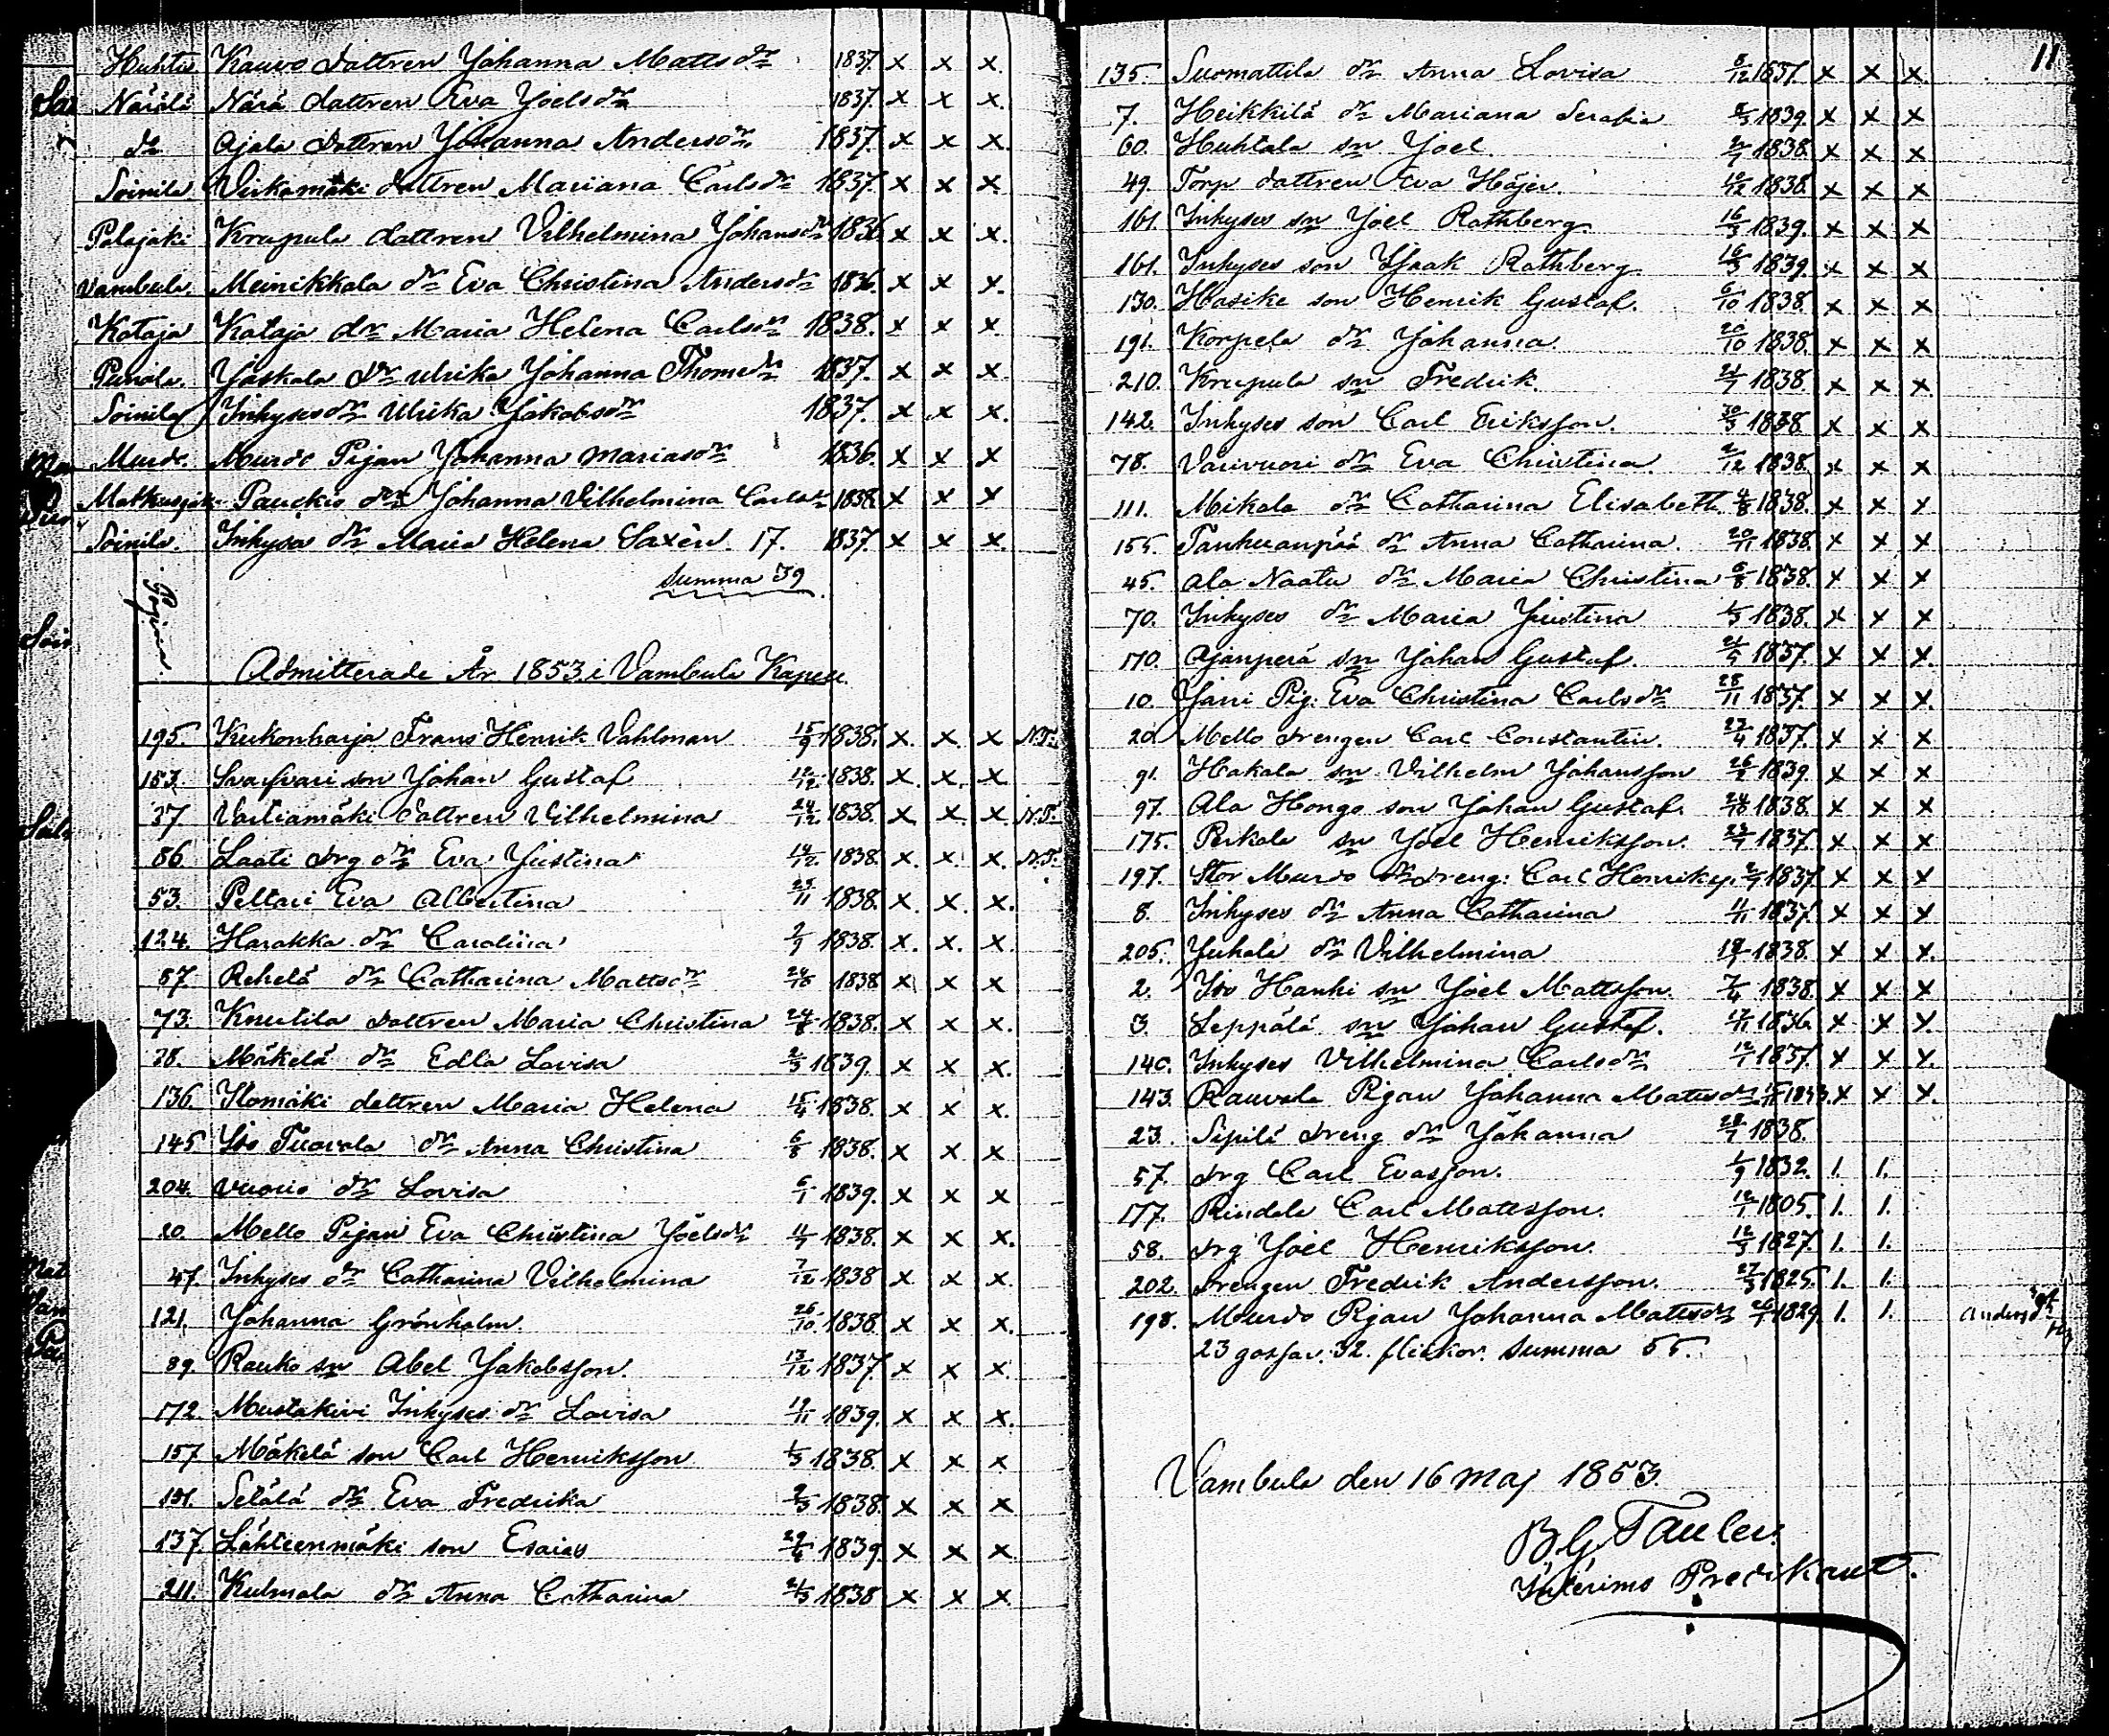 Huhtis Kauvo dattren Johanna Mattsdr 1837. x x x.
Närälä Närä dattren Eva Joelsdr 1837. x x x.
do Ajala dottren Johanna Andersdr 1837. x x x.
Soinila. Virkamäki dattren Mariana Carlsdr 1837. x x x.
Palajäki Krupula dattren Vilhelmina Johansdr 1836 x x x.
Vambula. Meinikkala dr Eva Christina Andersdr 1836. x x x.
Kataja Kataja dr Maria Helena Carlsdr 1838. x x x.
Punola. Jaskala dr Ulrika Johanna Thomedr 1837. x x x.
Soinila Inhyses dr Ulrika Jakobsdr 1837. x x x.
Murdo. Murdo Pijan Johanna Mariasdr 1836. x x x
Pauckio dr Johanna Vilhelmina Carlsdr 1838. x x x
Soinila. Inhysa dr Maria Helena Saxèn. 17. 1837. x x x.
Summa 39.
Pagina.
Admitterade År 1853 i Vambula Kapell.
195. Kukonharja Frans Henrik Vahlman 15/9 1838. x. x. x N.T.
153. son Johan Gustaf 12/12 1838. x. x. x
37 Vartiamäki dattren Vilhelmina 24/12 1838. x. x. x. N.T.
86. Laati drg dr Eva Justina 14/12 1838. x. x. x. N.T.
53. Peltari Eva Albertina 25/11 1838. x. x. x.
124. Harakka dr Carolina 2/9 1838. x. x. x.
87. Rehelä dr Catharina Mattsdr 24/10 1838 x x x
73. Knutila dattren Maria Christina 24/8 1838. x x x.
28. Mäkelä dr Edla Lovisa 2/3 1839. x x x.
136. Ilomäki dattren Maria Helena 15/4 1838. x x x.
145 Iso Tuovola dr Anna Christina 6/8 1838. x x x
204. Vuorio dr Lovisa 6/1 1839. x x x
20. Mello Pijan Eva Christina Joelsdr 11/7 1838. x x x.
47. Inhyses dr Catharina Vilhelmina 7/12 1838 x x x.
121. Johanna Grönholm. 26/10 1838 x x x.
89. Rauko sn Abel Jakobsson. 13/12 1837 x x x.
172. Mustakivi Inhyses dr Lovisa 19/11 1839. x x x.
157. Mäkelä son Carl Henriksson 1/3 1838. x x x
Setälä dr Eva Fredrika 2/3 1838. x x x
137. Lähteenmäki son Esaias 29/4 1839 x x x
211. Kulmala dr Anna Catharina 21/3 1838 x x x
11
135. Suomattila dr Anna Lovisa 8/12 1837. x x x.
7. Heikkilä dr Mariana Serafia 2/3 1839. x x x
60. Huhtala sn Joel. 2/7 1838. x x x
49. Torp dattren Eva Höjer. 10/12 1838. x x x
161. Inhyses sn Joel Rothberg 16/3 1839. x x x
161. Inhyses son Isaak Rothberg 16/3 1839. x x x
130. Hasike son Henrik Gustaf. 6/10 1838. x x x
191. Korpela dr Johanna 20/10 1838. x x x
210. Krupula sn Fredrik. 21/7 1838. x x x.
142. Inhyses son Carl Eriksson. 30/3 1838 x x x
78. Varivuori dr Eva Christina. 2/12 1838. x x x
111. Mikala dr Catharina Elisabeth. 4/8 1838. x x x
155. Tanhuanpää dr Anna Catharina. 20/11 1838. x x x
45. Ala Naatu dr Maria Christina 6/8 1838. x x x
70. Inhyses dr Maria Justina 1/3 1838. x x x
170. Ajanperä sn Johan Gustaf 1837. x x x.
10. Jarri Pig. Eva Christina Carlsdr 28/11 1837. x x x.
20. Mello drengen Carl Constantin. 27/4 1837. x x x
91. Hakala sn Vilhelm Johansson 26/2 1839. x x x
97. Ala Hongo son Johan Gustaf. 24/10 1838. x x x
175. Perkola sn Joel Henriksson. 1837. x x x
197. Stor Murdo dreng. Carl 1837 x x x
8. Inhyses dr Anna Catharina 11/11 1837. x x x
205. Juhala dr Vilhelmina 1838. x x x.
2. Iso Hanhi sn Joel Mattsson. 7/4 1838. x x x
3. Leppälä sn Johan Gustaf. 1836 x x x.
140. Inhyses Vilhelmina Carlsdr 12/1 1837. x x x.
143. Rauvola Pigan Johanna Mattsdr x x x.
23. Sipilä dreng dr Johanna 28/7 1838.
57. drg Carl Evasson. 1/9 1832. 1. 1.
177. Rindala Carl Mattsson. 12/1 1805. 1. 1.
58. drg Joel Henriksson. 12/3 1827. 1. 1.
202. drengen Fredrik Andersson. 27/3 1825. 1. 1.
198. Murdo Pigan Johanna Mattsdr 1829 1. 1.
23 gossar. 32. flickor. Summa 55.
Vambula den 16 Maj 1853.
B. G. Tauler.
Interims Predikant.